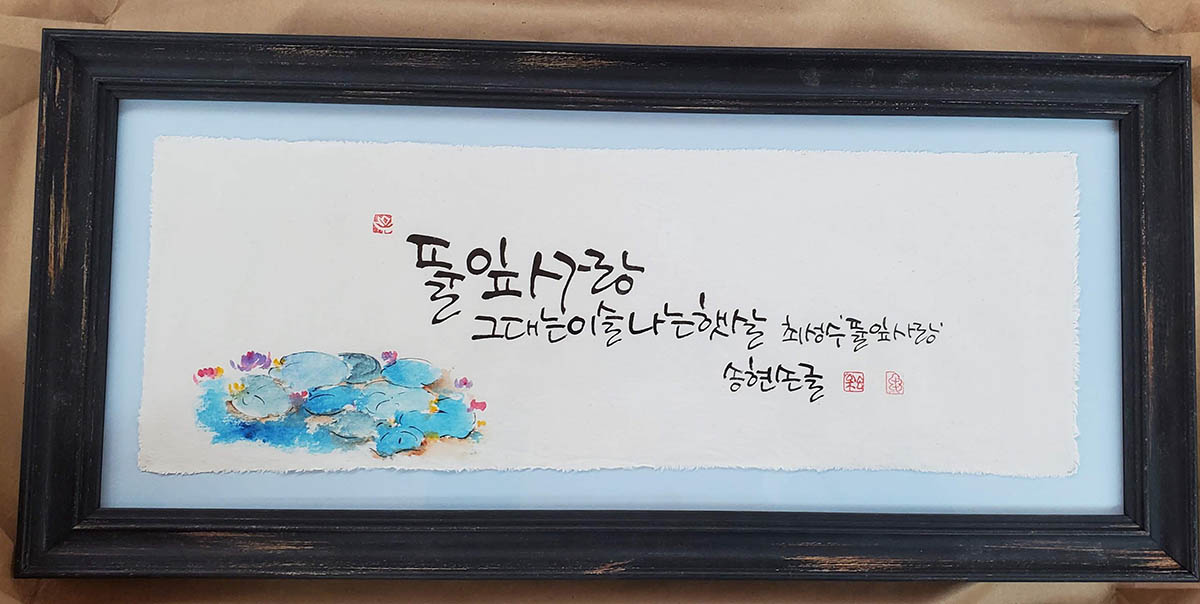 풀잎사랑
그대는이슬나는햇살 최성수'풀잎사랑'
송현손글